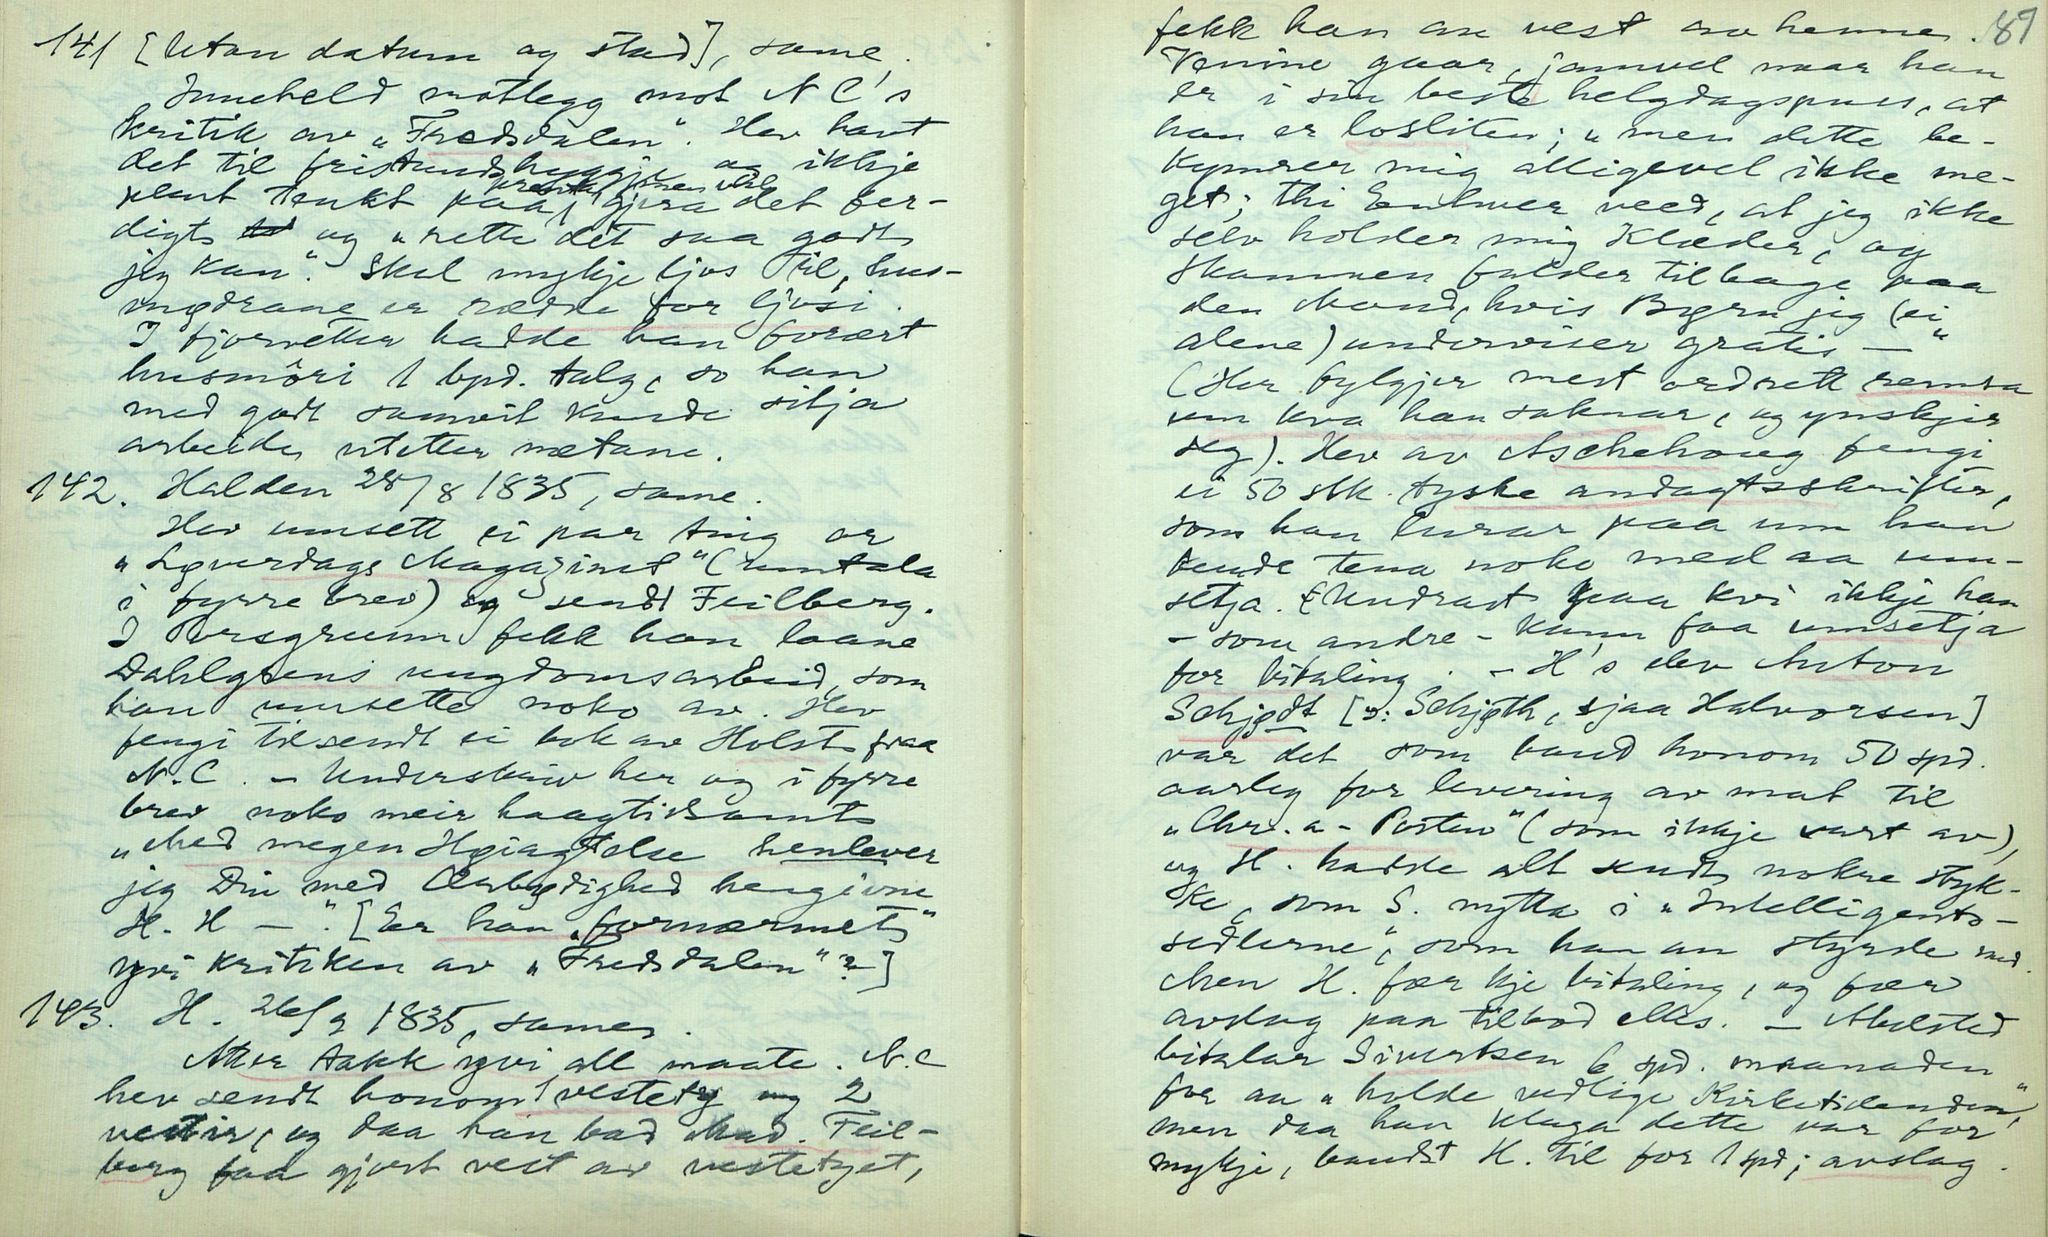 141 [Utan datum og stad], same.
Inneheld motlegg mot N C's
kritik av "Fredsdalen". Hev havt
det til fristundshyggje og ikkje
plent tenkt paa prenta, men vil
gjera det fer-
digt og "rette det saa godt
jeg kan". Skal mykje ljos til, hus-
mødrane er rædde for ljosi.
I fjorvetter hadde han forært
husmôri 1 bpd. talg, so han
med godt samvit kunde sitja
arbeide utetter nætane.
142. Halden 28/8 1835, same.
Hev umsett ei par ting or
"Løverdags Magazinet" (umtala
i fyrre brev) og sendt Feilberg.
I Porsgrunn fekk han laane
Dahlgrens ungdomsarbeid, som
han umsette noko av. Hev
fengi tilsendt ei bok av Holst fraa
N.C. - Underskriv her og i fyrre
brev noko meir haagtidsamt
"Med megen Høiagtelse henlever
jeg Din med Ærbødighed hengivne
H. H - ". [Er han "fornærmet"
yvi kritiken av "Fredsdalen"?]
143. H. 26/9 1835, same.
Atter takk yvi all maate. N.C
hev sendt honom 1 vestety og 2
vestir, og daa han bad Mad. Feil-
berg faa gjort vest av vestetyet,
89
fekk han au vest av henne.
Venine gaar, jamvel naar han
er i sin beste helgdagspuss, at
han er losliten; "men dette be-
kymrer mig alligevel ikke me-
get; thi Enhver veed, at jeg ikke
selv holder mig Klæder, og
Skammen falder tilbage paa
den Mand, hvis Børn jeg (ei
alene) underviser gratis - "
(Her fylgjer mest ordrett remsa
um kva han saknar, og ynskjer
seg). Hev av Aschehoug fengi
ei 50 stk. tyske andagtsskrifter,
som han lurar paa um han
kunde tena noko med aa um-
setja. Undrast paa kvi ikkje han
- som andre - kunn faa umsetja
for bitaling. - H's elev Anton
Schjødt [ɔ: Schjøth, sjaa Halvorsen]
var det som baud honom 50 spd.
aarleg for levering av mat til
"Chr.a-Posten" (som ikkje vart av),
og H. hadde alt sendt nokre styk-
ke, som S. nytta i "Intelligents-
sedlerne", som han au styrde med.
Men H. fær kje bitaling, og fær
avslag paa tilbod elles. - Abelsted
bitalar Sivertsen 6 spd. maanaden
for aa "holde vedlige Kirketidenden",
men daa han klaga dette var for
mykje, baudst H. til for 1 spd; avslag.